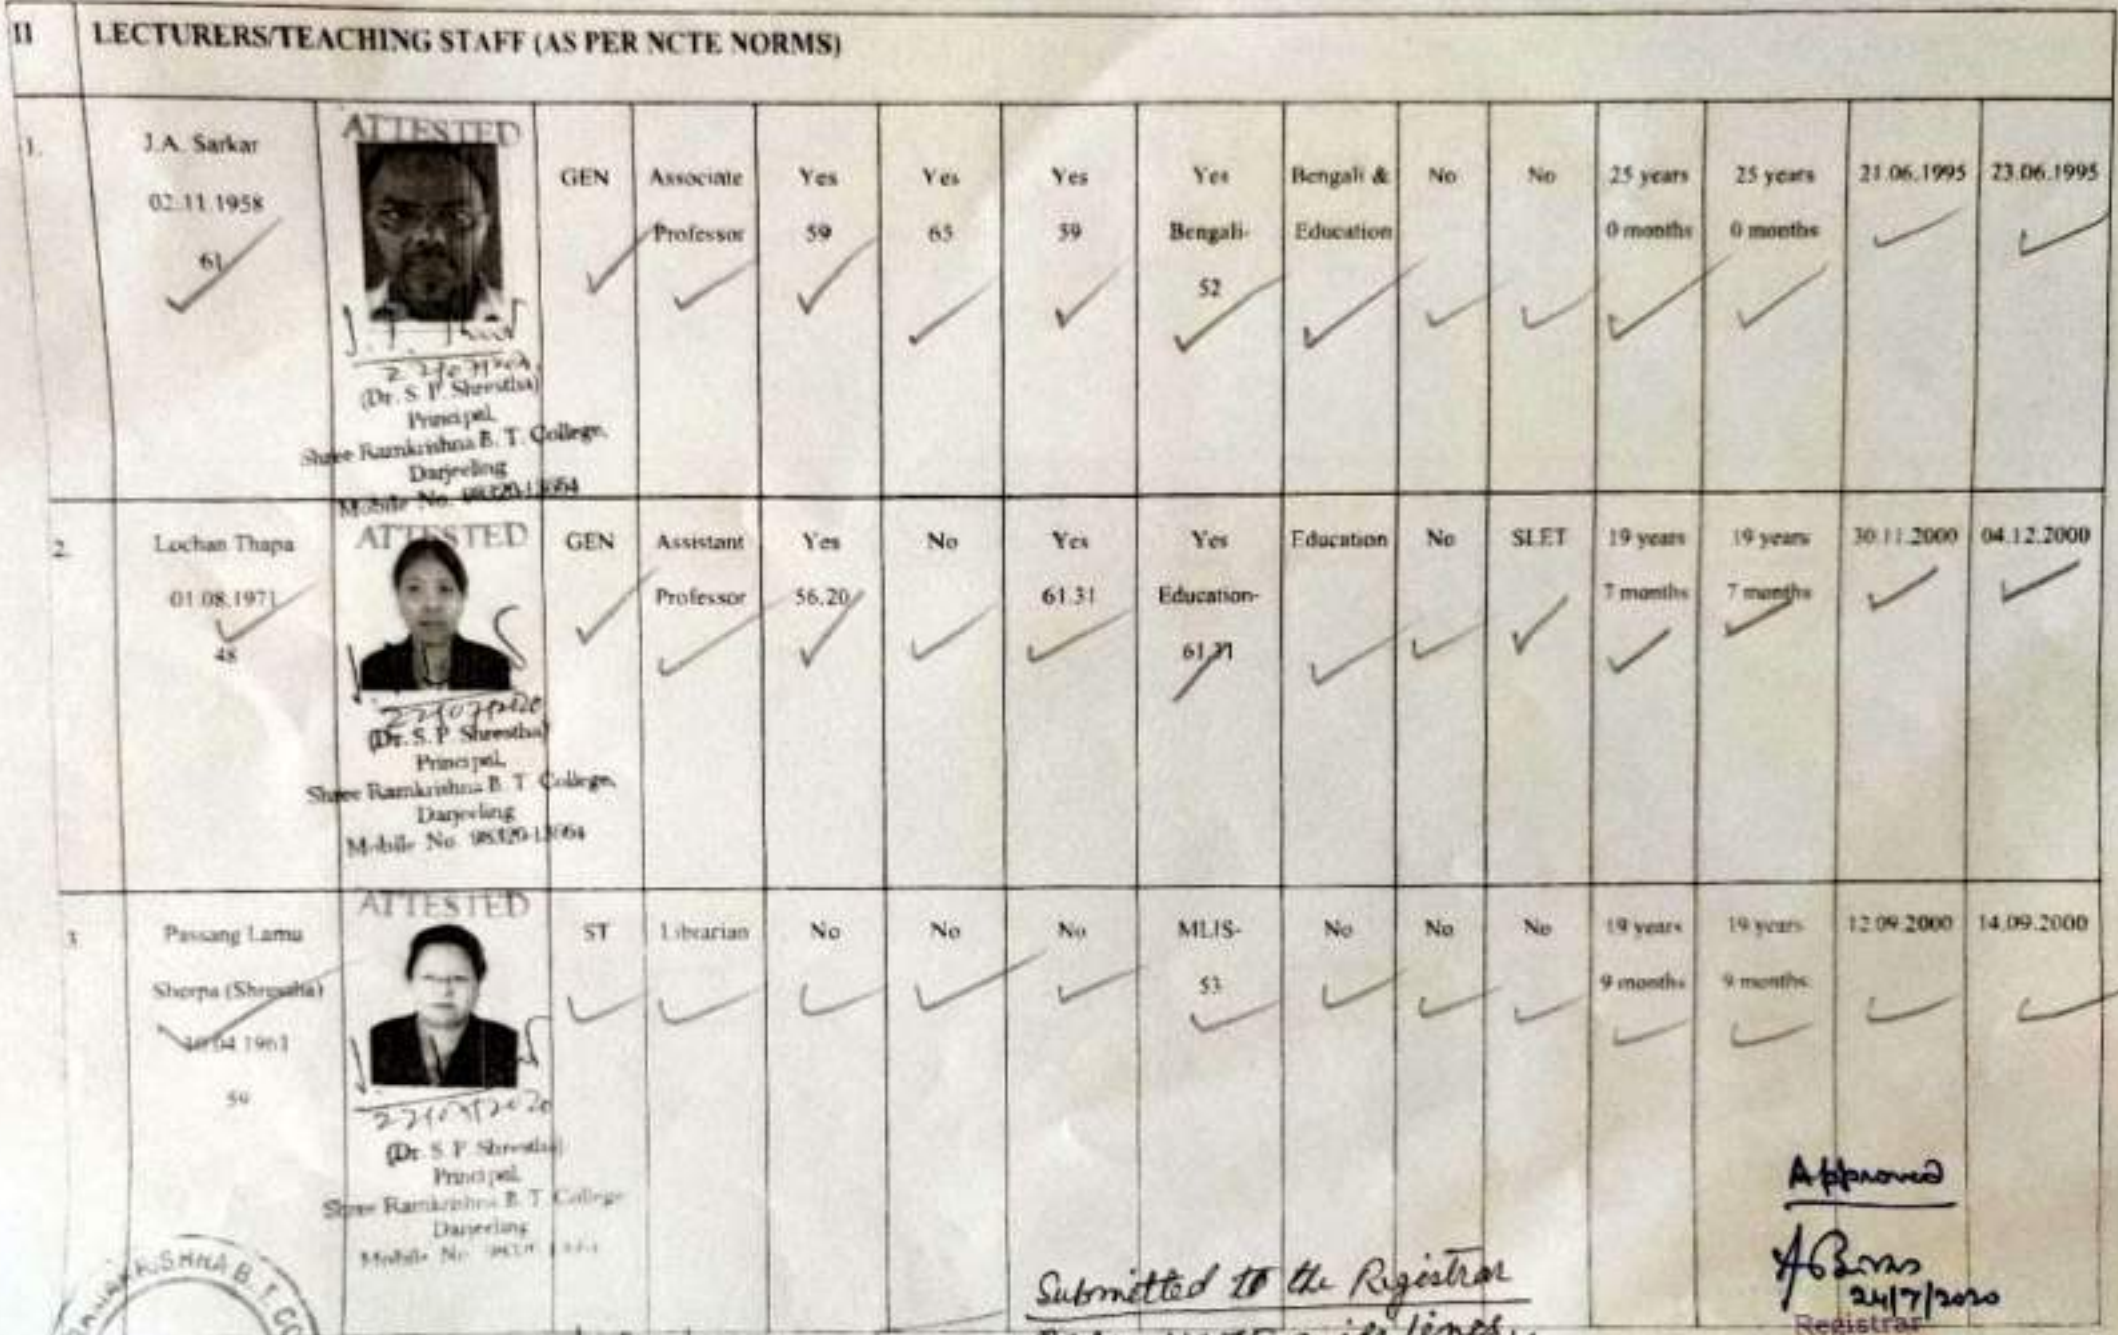 II LECTURERS/TEACHING STAFF (AS PER NCTE NORMS)
1.
J.A. Sarkar
02.11.1958
61
ATTESTED
(Dr. S. P. Shrestha)
Principal,
Shree Ramkrishna B. T. College,
Darjeeling
Mobile No.
GEN
Associate
Professor
Yes
59
Yes
65
Yes
59
Yes
Bengali-
52
Bengali &
Education
No
No
25 years
0 months
25 years
0 months
21.06.1995
23.06.1995
2.
Lochan Thapa
01.08.1971
48
ATTESTED
(Dr. S. P. Shrestha)
Principal,
Shree Ramkrishna B. T. College,
Darjeeling
Mobile No.
GEN
Assistant
Professor
Yes
56.20
No
Yes
61.31
Yes
Education-
61.31
Education
No
SLET
19 years
7 months
19 years
7 months
30.11.2000
04.12.2000
3
Passang Lamu
Sherpa (Shrestha)
59
ATTESTED
(Dr. S. P. Shrestha)
Principal,
Shree Ramkrishna B. T. College
Darjeeling
Mobile No.
ST
Librarian
No
No
No
MLIS-
53
No
No
No
19 years
9 months
19 years
9 months
12.09.2000
14.09.2000
Approved
24/7/2020
Registrar
Submitted to the Registrar
KRISHNA B. T. CO